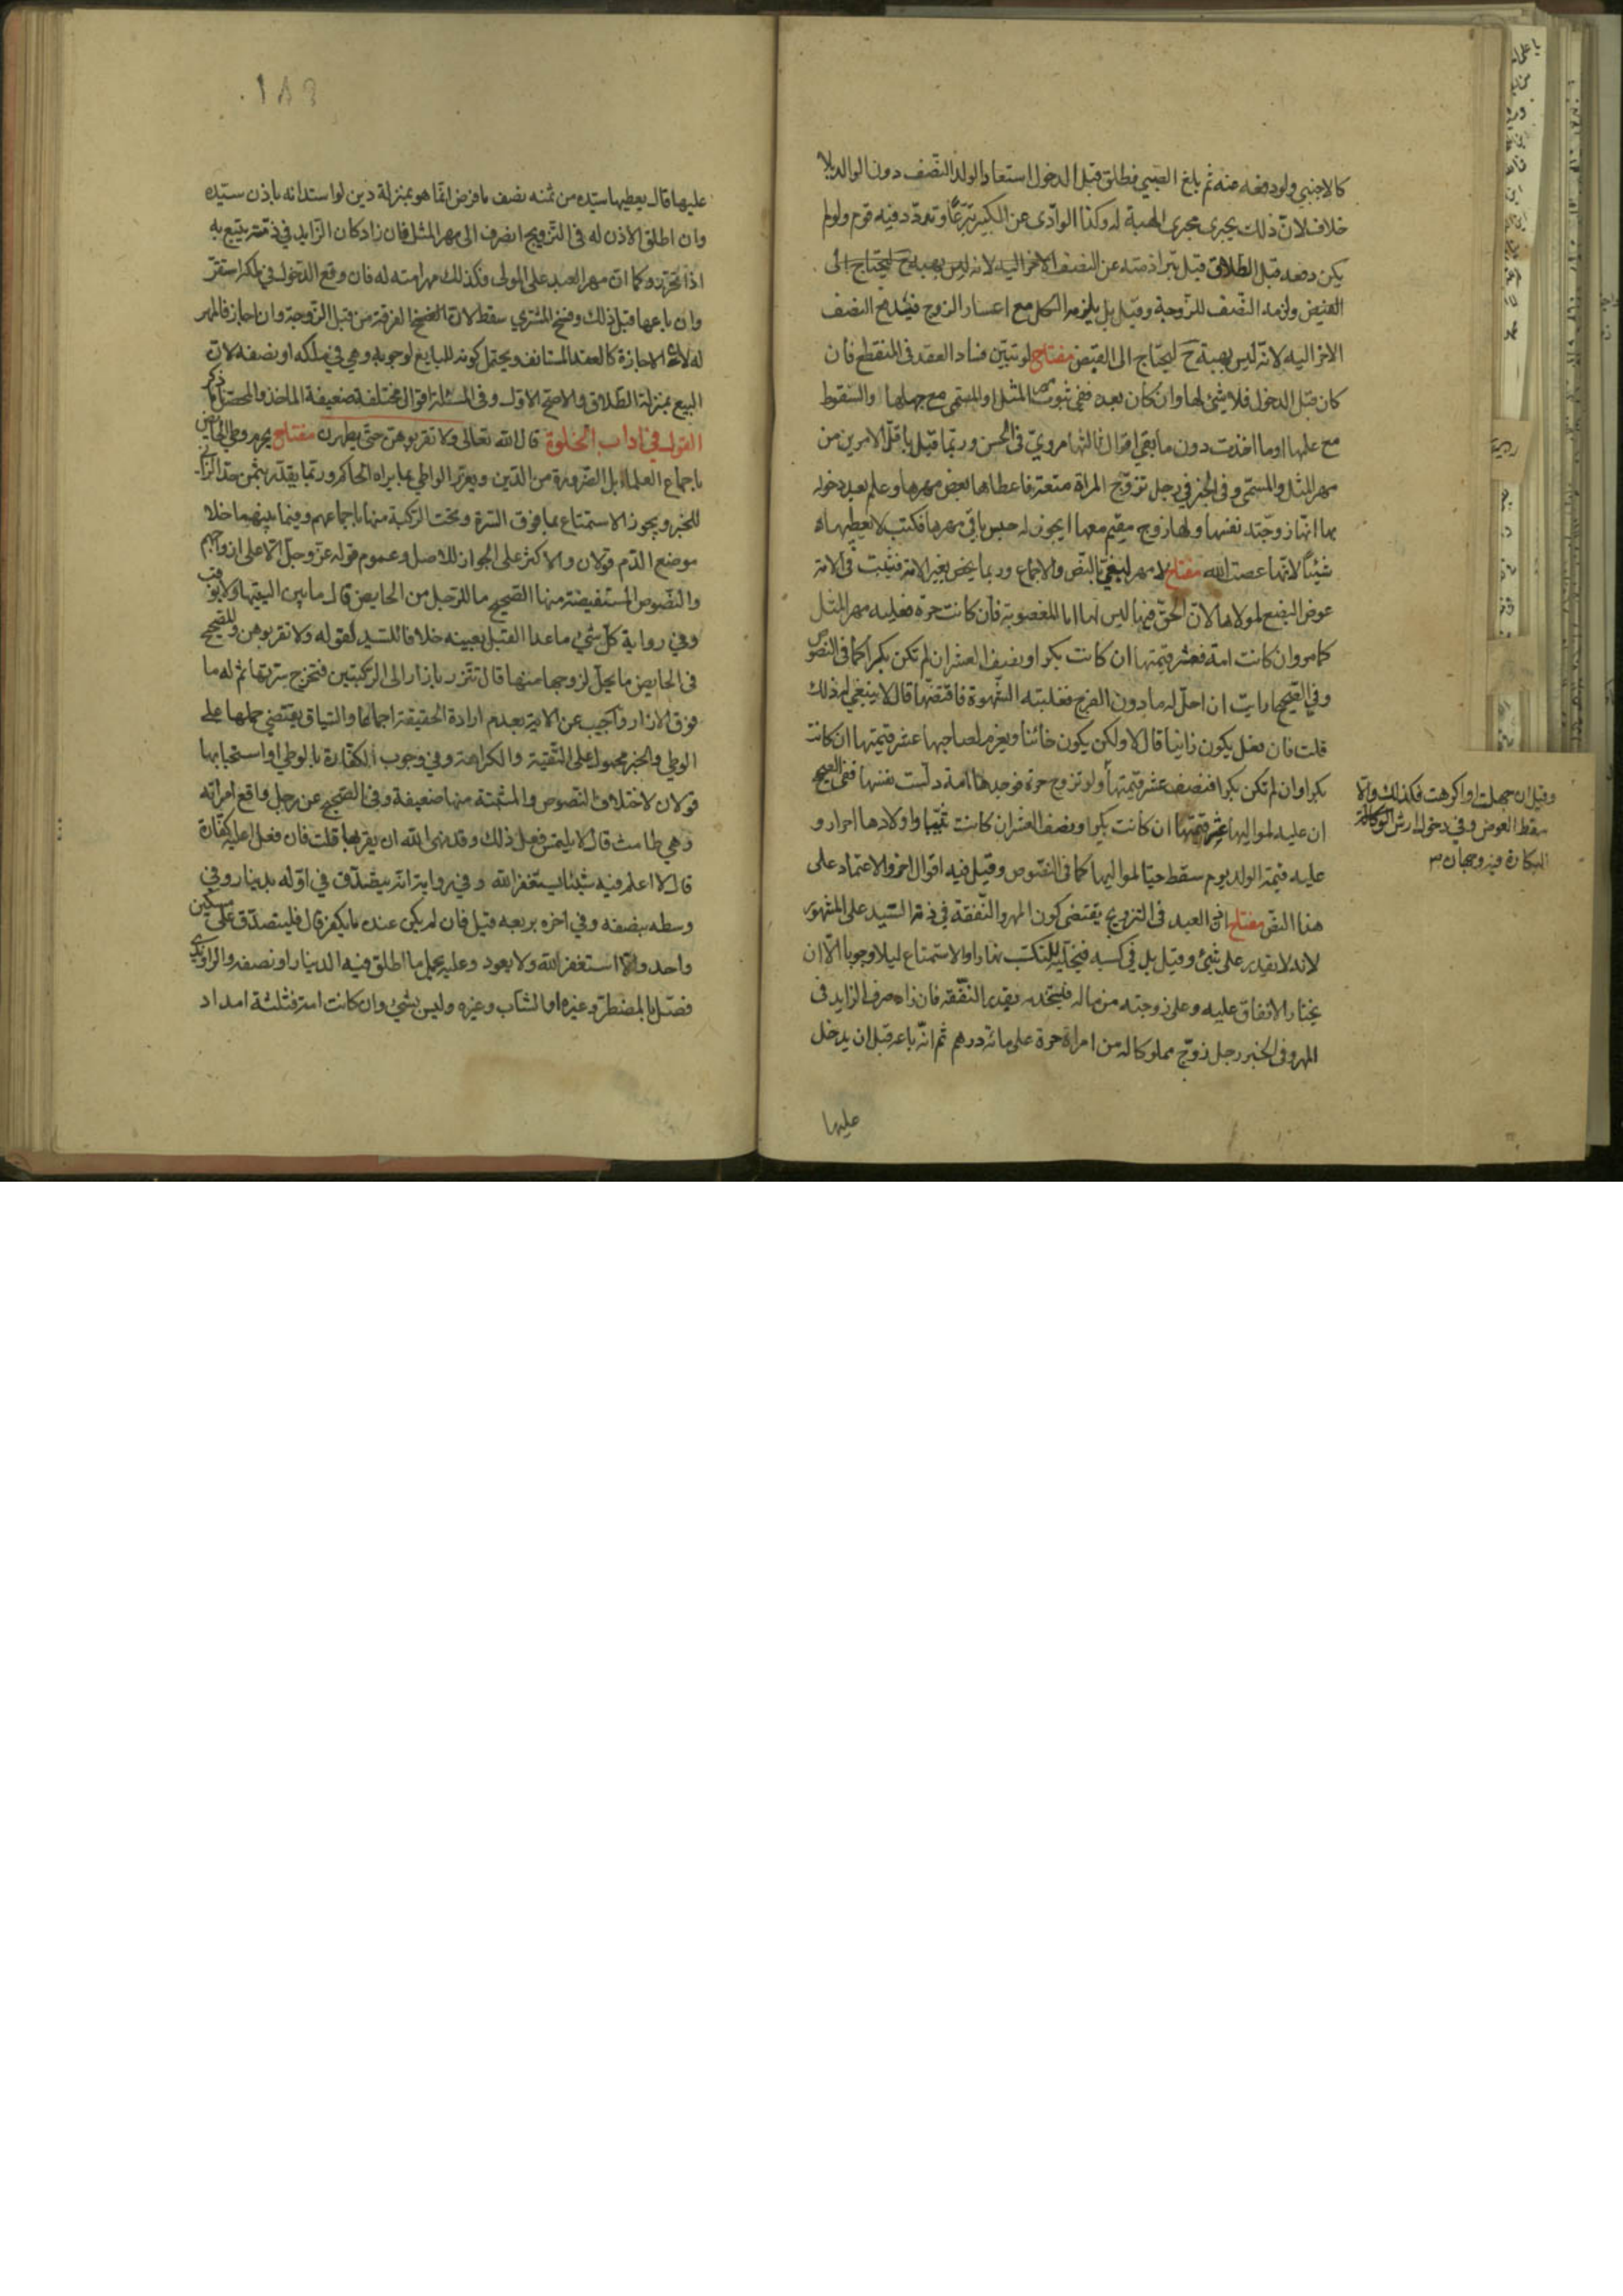 كالاجنبي ولو دفعه عنه ثم بلغ الصبي فطلق قبل الدخول استعاد الولد النصف دون الوالد بلا
خلاف لان ذلك يجرى مجرى الهبة له وكذا لو ادى عن الكبير تبرعا وتردد فيه قوم ولو لم
يكن دفعه قبل الطلاق قيل تبرا ذمته عن النصف الاخر اليه لانه ليس بهبة ح ليحتاج الى
القبض ولزمه النصف للزوجة وقيل بل يلزمه الكل مع اعسار الزوج فيدفع النصف
الاخر اليه لانه ليس بهبة ح ليحتاج الى القبض مفتاح لو تبين فساد العقد فى المنقطع فان
كان قبل الدخول فلا شئ لها وان كان بعده ففى ثبوت مهر المثل او المسمى مع جهلها والسقوط
مع علمها او ما اخذت دون ما بقى اقوال ثالثها مروي فى الحسن وربما قيل باقل الامرين من
مهر المثل والمسمى وفى الخبر فى رجل تزوج المراة متعة فاعطاها بعض مهرها وعلم بعد دخوله
بها انها زوجته نفسها ولها زوج مقيم معها ايجوز له حبس باقى مهرها فكتب لا يعطيها
شيئا لانها عصت الله مفتاح لا مهر لبغي بالنص والاجماع وربما يخص بغير الامة فيثبت فى الامة
عوض البضع لمولاها لان الحق فيها ليس لها اما المغصوبة فان كانت حرة فعليه مهر المثل
كما مر وان كانت امة فعشر قيمتها ان كانت بكرا ونصف العشر ان لم تكن بكرا كما فى النصوص
وفي الصحيح ارايت ان احل له ما دون الفرج فغلبته الشهوة فافتضها قال لا ينبغي له ذلك
قلت فان فعل يكون زانيا قال لا ولكن يكون خائنا ويغرم لصاحبها عشر قيمتها ان كانت
بكرا وان لم تكن بكرا فنصف عشر قيمتها ولو تزوج حرة فوجدها امة دلست نفسها ففى الصحيح
ان عليه لمواليها عشر قيمتها ان كانت بكرا ونصف العشر ان كانت ثيبا واولادها احرار و
عليه قيمة الولد يوم سقط حيا لمواليها كما فى النصوص وقيل فيه اقوال اخر والاعتماد على
هذا النص مفتاح اذن العبد فى التزويج يقتضى كون المهر والنفقة في ذمة السيد على المشهور
لانه لا يقدر على شئ وقيل بل فى كسبه فيخليه للتكسب نهارا والاستمتاع ليلا وجوبا الا ان
يختار الانفاق عليه وعلى زوجته من ماله فليخدمه بقدر النفقة فان زاد صرف الزايد فى
المهر وفى الخبر رجل زوج مملوكا له من امراة حرة على مائة درهم ثم انه باعه قبل ان يدخل
عليها
وقيل ان جهلت او اكرهت فكذلك والا
سقط العوض وفي دخول ارش
البكارة فيه وجهان
١٨٣
عليها قال يعطيها سيده من ثمنه نصف ما فرض انما هو بمنزلة دين لو استدانه باذن سيده
وان اطلق الاذن له فى التزويج انصرف الى مهر المثل فان زاد كان الزايد في ذمته يتبع به
اذا تحرر وكما ان مهر العبد على المولى فكذلك مهر امته له فان وقع الدخول في ملكه استقر
وان باعها قبل ذلك وفسخ المشتري سقط لان الفسخ الفرقة من قبل الزوجة وان اجاز فالمهر
له لان الاجازة كالعقد المستانف ويحتمل كونه للبايع لوجوبه وهي في ملكه او نصفه لان
البيع بمنزلة الطلاق والاصح الاول وفى المسئلة اقوال مختلفة ضعيفة الماخذ والمحصل ما ذكر
القول في اداب الخلوة قال الله تعالى ولا تقربوهن حتى يطهرن مفتاح يحرم وطي الحايض
باجماع العلماء بل الضرورة من الدين ويعزر الواطي بما يراه الحاكم وربما يقدر بثمن حد الزاني
للخبر ويجوز الاستمتاع بما فوق السرة وتحت الركبة منها باجماعهم وفيما بينهما خلا
موضع الدم قولان والاكثر على الجواز للاصل وعموم قوله عز وجل الا على ازواجهم
والنصوص المستفيضة منها الصحيح ما للرجل من الحايض قال ما بين اليتيها ولا يوقب
وفي رواية كل شئ ما عدا القبل بعينه خلافا للسيد لقوله ولا تقربوهن وللصحيح
فى الحايض ما يحل لزوجها منها قال تتزر بازار الى الركبتين فتخرج سرتها ثم له ما
فوق الازار واجيب عن الاية بعدم ارادة الحقيقة اجماعا والسياق يقتضي حملها على
الوطي والخبر محمول على التقية والكراهة وفي وجوب الكفارة بالوطي او استحبابها
قولان لاختلاف النصوص والمثبتة منها ضعيفة وفى الصحيح عن رجل واقع امراته
وهي طامث قال لا يلتمس فعل ذلك وقد نهى الله ان يقربها قلت فان فعل اعليه كفارة
قال لا اعلم فيه شيئا يستغفر الله وفي رواية انه يتصدق في اوله بدينار وفي
وسطه بنصفه وفي اخره بربعه قيل فان لم يكن عنده ما يكفر قال فليتصدق على مسكين
واحد والا استغفر الله ولا يعود وعليه يحمل ما اطلق فيه الدينار او نصفه والراوندي
فصل بالمضطر وغيره او الشاب وغيره وليس بشئ وان كانت امته فثلثة امداد